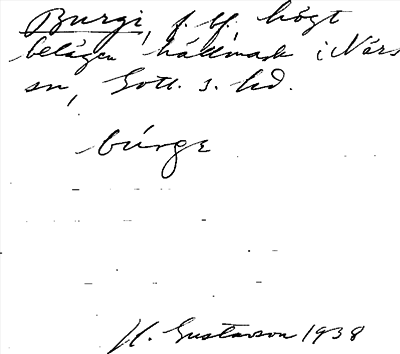 Burgi, f. bf. högt
belägen hällmark i När s
sn, Gotl. s. hd.
búrge
H. Gustavson 1938